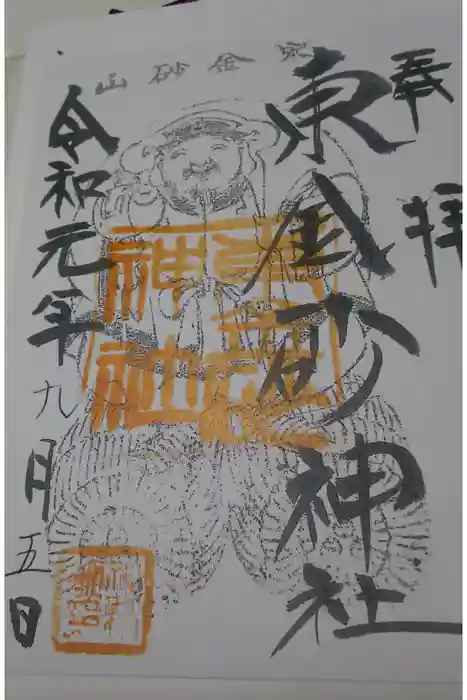 奉拝
東金砂神社
東金砂山
令和元年九月五日